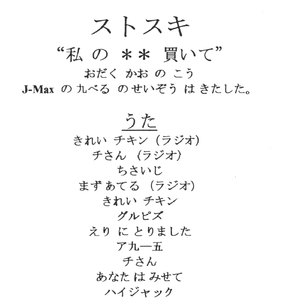 ストスキ
“私 の ＊＊ 買いて”
おだく かお の こう
J-Max の 九べる のせいぞう は きたした。
うた
きれい チキン（ラジオ）
チさん （ラジオ）
ちさいじ
まず あてる （ラジオ）
きれい チキン
グルビズ
えり に とりました
ア九―五
チさん
あなた は みせて
ハイジャック